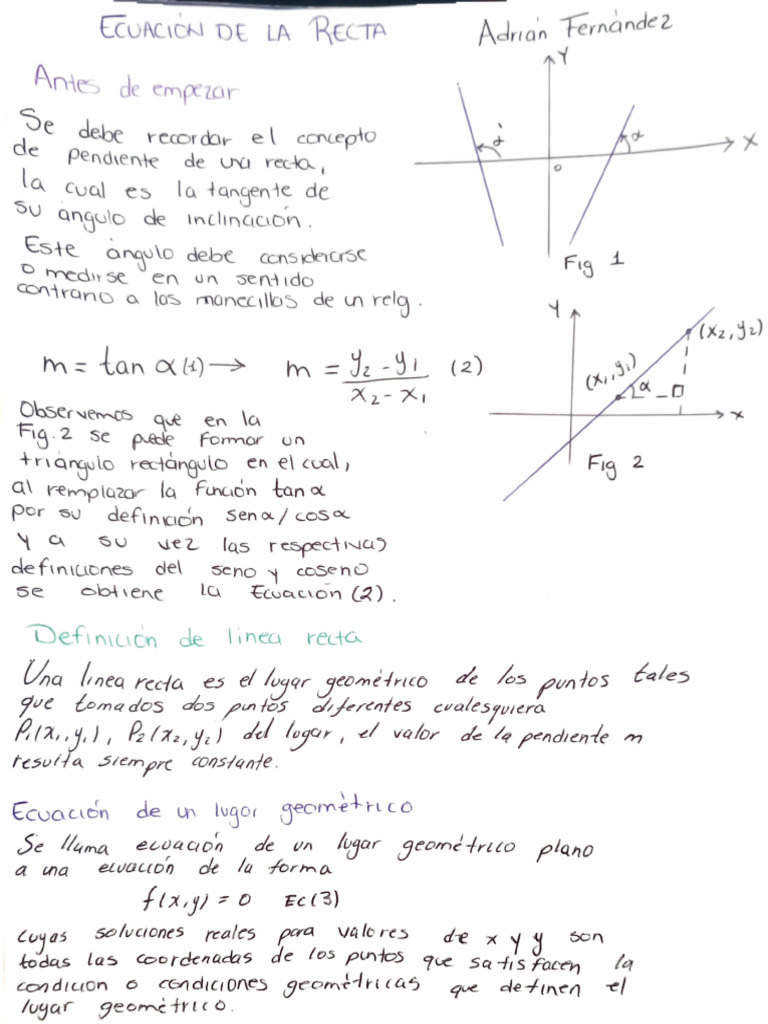 ECUACIÓN DE LA RECTA
Adrián Fernández
Antes de empezar
Se debe recordar el concepto
de pendiente de una recta,
la cual es la tangente de
su ángulo de inclinación.
Este ángulo debe considerarse
o medirse en un sentido
contrario a las manecillas de un relg.
Y
α'
α
X
o
Fig 1
m = tan α (1) → m = y₂ - y₁ / x₂ - x₁ (2)
Y
(x₂, y₂)
(x₁, y₁)
α
x
Fig 2
Observemos que en la
Fig. 2 se puede formar un
triángulo rectángulo en el cual,
al remplazar la función tan α
por su definición sen α / cos α
y a su vez las respectivas
definiciones del seno y coseno
se obtiene la Ecuación (2).
Definición de linea recta
Una linea recta es el lugar geométrico de los puntos tales
que tomados dos puntos diferentes cualesquiera
P₁(x₁, y₁), P₂(x₂, y₂) del lugar, el valor de la pendiente m
resulta siempre constante.
Ecuación de un lugar geométrico
Se llama ecuación de un lugar geométrico plano
a una ecuación de la forma
f(x,y) = 0 EC(3)
cuyas soluciones reales para valores de x y y son
todas las coordenadas de los puntos que satisfacen la
condicion o condiciones geométricas que definen el
lugar geométrico.